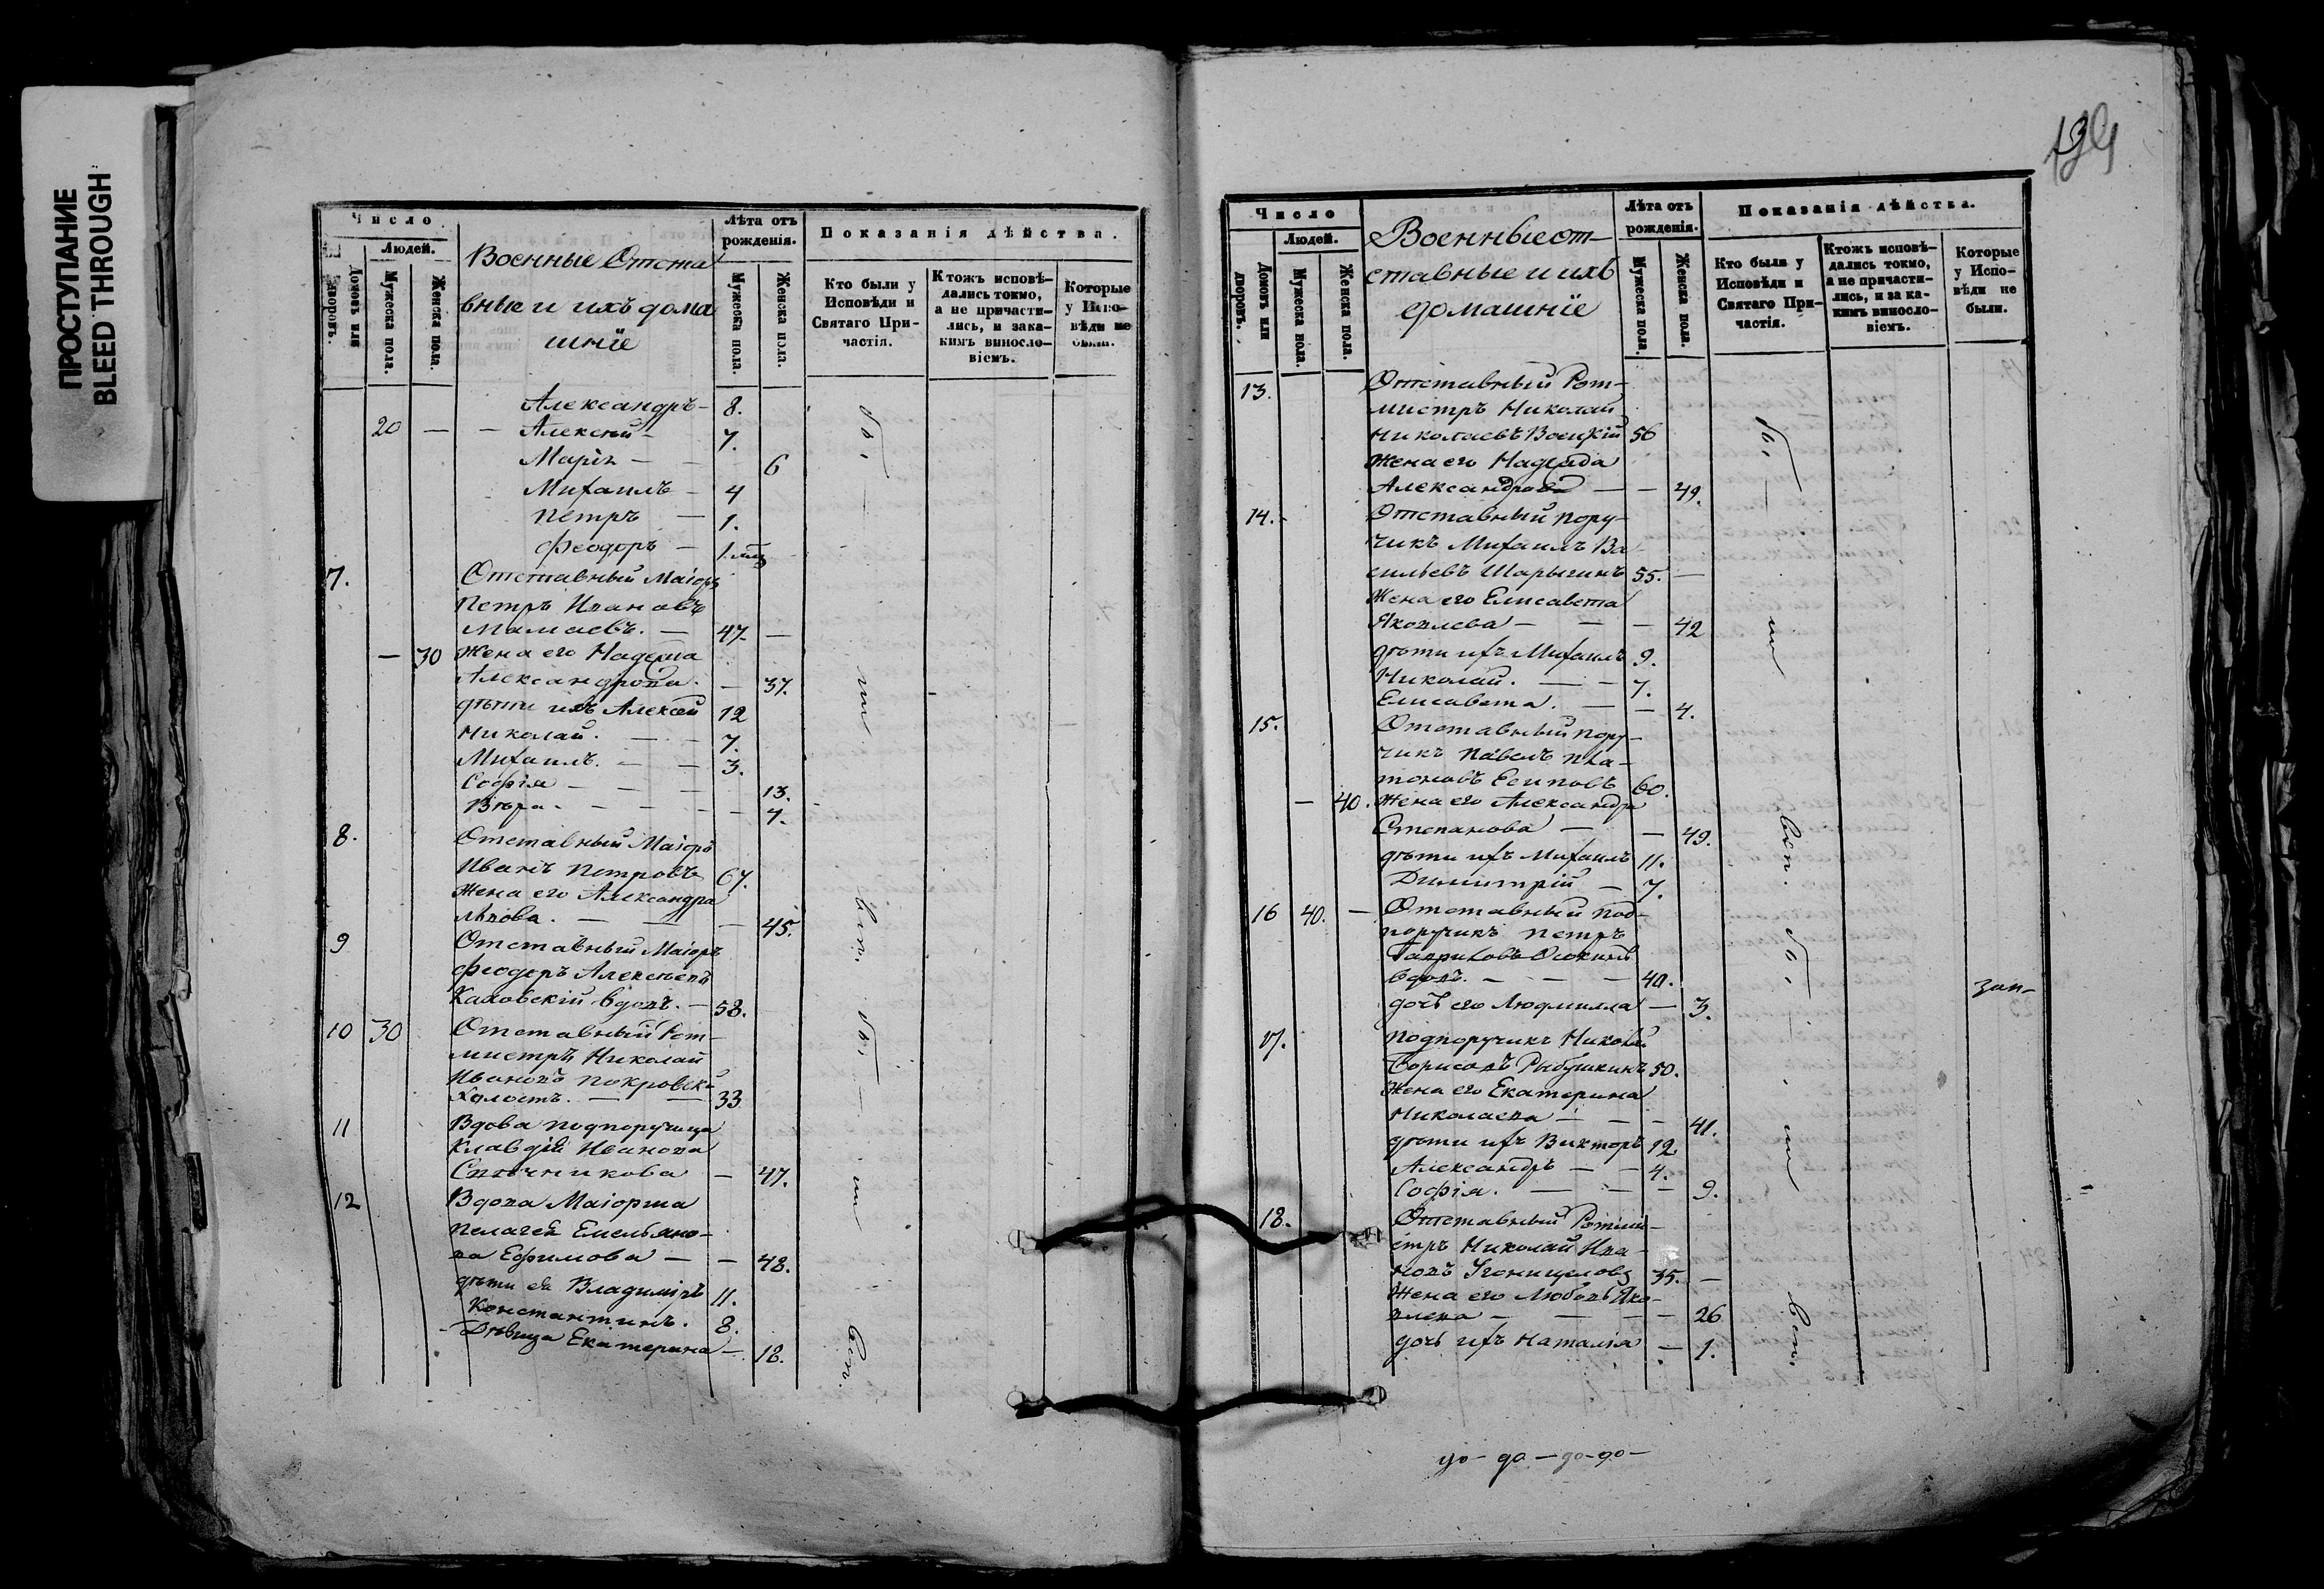 ПРОСТУПАНИЕ
BLEED THROUGH
Число
Людей.
Домовъ или дворовъ.
Мужеска пола.
Женска пола.
Военные Отста
вные и ихъ дома
шніе
Лѣта отъ рожденія.
Мужеска пола.
Женска пола.
Показанія дѣйства.
Кто были у Исповѣди и Святаго Причастія.
Ктожъ исповѣ-
дались токмо,
а не причасти-
лись, и зака-
кимъ виносло-
віемъ.
Которые
у Испо-
вѣди не
были.
Александръ - 8.
20 — — Алексѣй - 7.
Марія — — 6
Михаилъ - 4
Петръ — 1.
Феодоръ — 1 мц
7. Отставный Маіоръ
Петръ Ивановъ
Мамаевъ. — 47 —
— 30 Жена его Надежда
Александрова. — 37.
дѣти ихъ Алексѣй 12
Николай. — — 7.
Михаилъ. — — 3.
Софія — — — 13.
Вѣра - — — — 4.
8. Отставный Маіоръ
Иванъ Петровъ 67.
Жена его Александра
Львова. — — — 45.
9 Отставный Маіоръ
Феодоръ Алексѣевъ
Каховскій вдовъ. — 58.
10 30 Отставный Рот-
мистръ Николай
Ивановъ Покровск
Холостъ. — — 33
11 Вдова подпоручица
Клавдія Иванова
Спичникова — 47.
12 Вдова Маіорша
Пелагея Емельяно-
ва Ефимова — — 48.
дѣти ея Владиміръ 11.
Константинъ. 8.
Дѣвица Екатерина — 18.
бы
ли
вст.
бы
ли
вст.
139
Число
Людей.
Домовъ или дворовъ.
Мужеска пола.
Женска пола.
Военные от-
ставные и ихъ
домашніе
Лѣта отъ рожденія.
Мужеска пола.
Женска пола.
Показанія дѣйства.
Кто были у
Исповѣди и
Святаго При-
частія.
Ктожъ исповѣ-
дались токмо,
а не причасти-
лись, и за ка-
кимъ виносло-
віемъ.
Которые
у Испо-
вѣди не
были.
13. Отставный Рот-
мистръ Николай
Николаевъ 56
Жена его Надежда
Александрова — — 49.
14. - Отставный Пору-
чикъ Михаилъ Ва-
сильевъ Шарыгинъ 55. —
Жена его Елисавета
Яковлева — — — 42
дѣти ихъ Михаилъ 9.
Николай. — — 7.
Елисавета. — — 4.
15. Отставный Пору-
чикъ Павелъ Пла-
тоновъ Есиповъ 60.
— 40. Жена его Александра
Степанова — — 49.
дѣти ихъ Михаилъ 11.
Димитрій — 7.
16 40. — Отставный Под-
поручикъ Петръ
Гавриловъ
вдовъ. — — — 40.
дочь его Людмилла — 3.
17. Подпоручикъ Николай
Борисовъ Рыбушкинъ 50.
Жена его Екатерина
Николаева — — — 41.
дѣти ихъ Викторъ 12
Александръ — — 4.
Софія. — — — 9.
18. Отставный Ротми-
стръ Николай Ива-
новъ 35. —
Жена его Любовь Яко-
влева — — — — 26
дочь ихъ Наталія — 1.
бы
ли
вст.
бы
ли
вст.
зап-